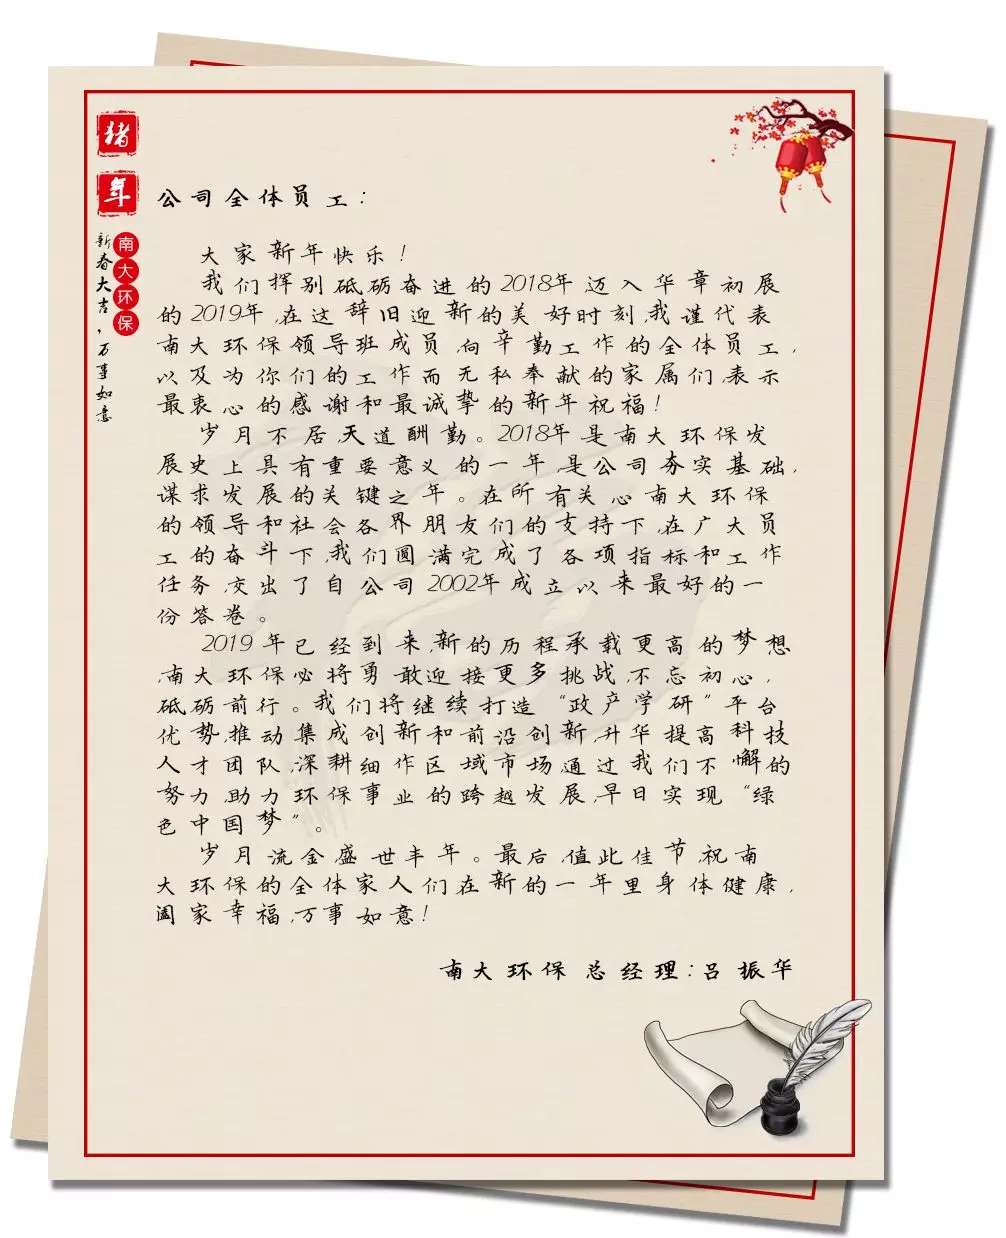 猪年
南大环保
新春大吉，万事如意
公司全体员工：
大家新年快乐！
我们挥别砥砺奋进的2018年迈入华章初展
的2019年,在这辞旧迎新的美好时刻,我谨代表
南大环保领导班成员,向辛勤工作的全体员工,
以及为你们的工作而无私奉献的家属们,表示
最衷心的感谢和最诚挚的新年祝福！
岁月不居,天道酬勤。2018年是南大环保发
展史上具有重要意义的一年,是公司夯实基础,
谋求发展的关键之年。在所有关心南大环保
的领导和社会各界朋友们的支持下,在广大员
工的奋斗下,我们圆满完成了各项指标和工作
任务,交出了自公司2002年成立以来最好的一
份答卷。
2019年已经到来,新的历程承载更高的梦想
,南大环保必将勇敢迎接更多挑战,不忘初心,
砥砺前行。我们将继续打造“政产学研”平台
优势,推动集成创新和前沿创新,升华提高科技
人才团队,深耕细作区域市场,通过我们不懈的
努力,助力环保事业的跨越发展,早日实现“绿
色中国梦”。
岁月流金盛世丰年。最后,值此佳节,祝南
大环保的全体家人们在新的一年里身体健康,
阖家幸福,万事如意！
南大环保 总经理:吕振华